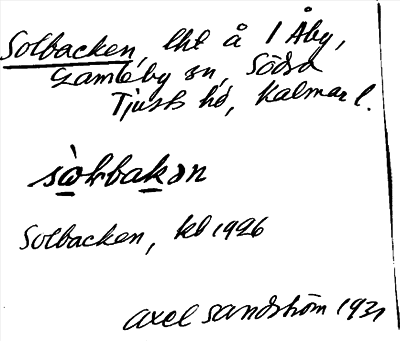 Solbacken, lht å 1 Åby,
Gamleby sn, Södra
Tjusts hd, Kalmar l.
sòlbakən
Solbacken, kb 1926
Axel Sandström 1931